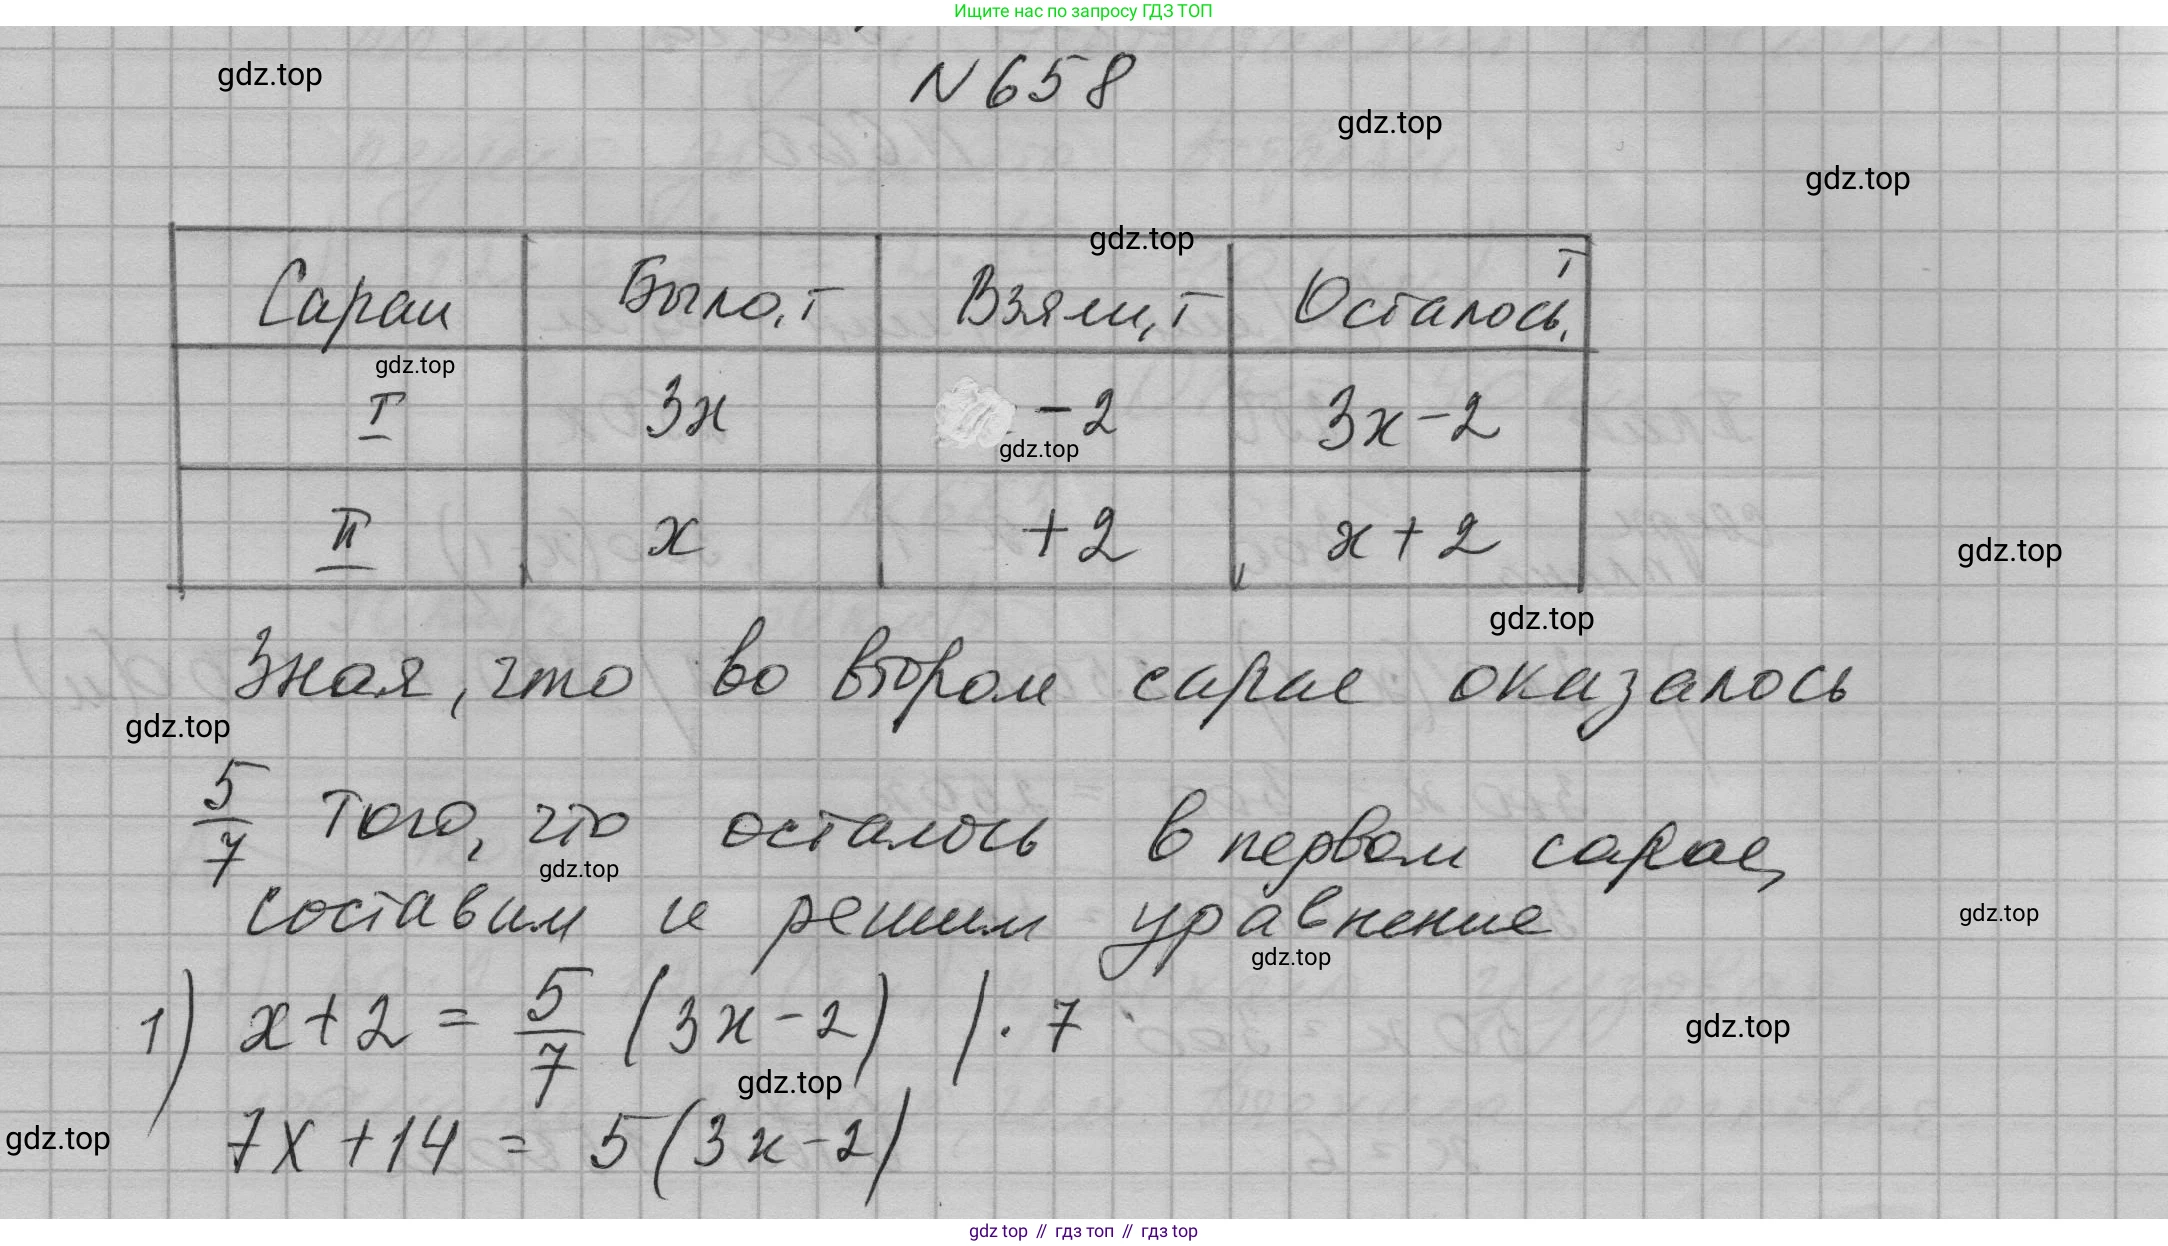 Ищите нас по запросу ГДЗ ТОП
N 658
gdz.top
gdz.top
gdz.top
gdz.top
Сараи Было, т Взяли, т Осталось, т
gdz.top
I 3x -2 3x-2
gdz.top
II x +2 x+2
gdz.top
gdz.top
Зная, что во втором сарае оказалось
gdz.top
5/7 того, что осталось в первом сарае,
gdz.top
составим и решим уравнение
gdz.top
gdz.top
1) x+2 = 5/7 (3x-2) | · 7
gdz.top
gdz.top
7x+14 = 5(3x-2)
gdz.top
gdz top // гдз топ // гдз top